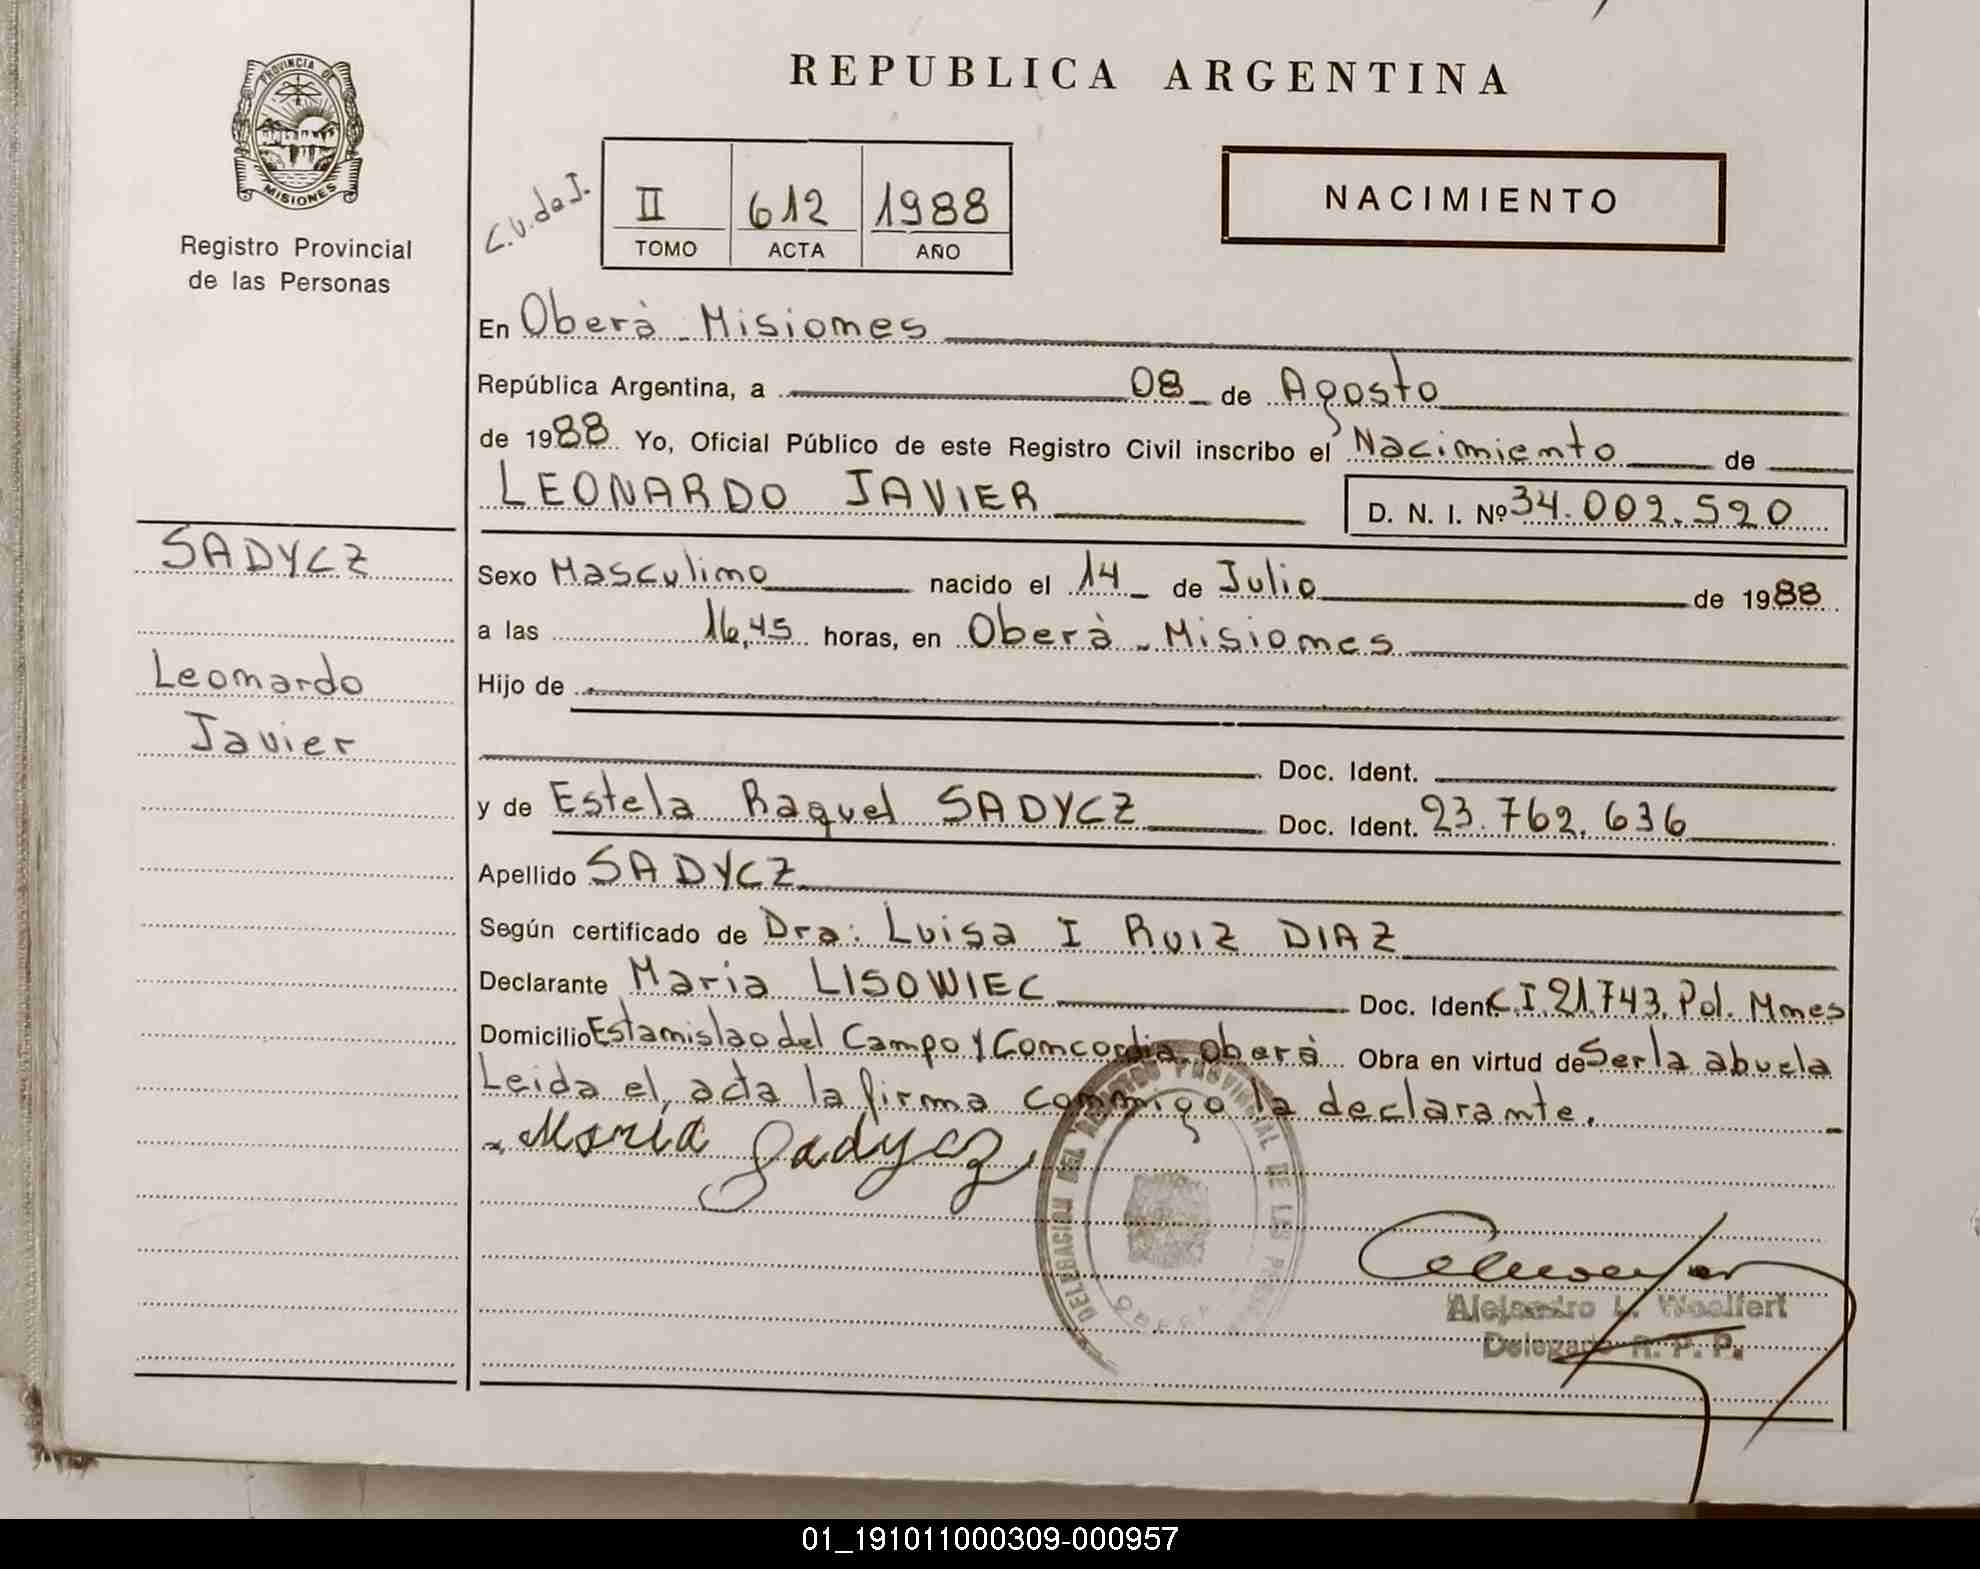 REPUBLICA ARGENTINA
PROVINCIA DE
MISIONES
Registro Provincial
de las Personas
C.U. de I.
II 612 1988
TOMO ACTA AÑO
NACIMIENTO
En Oberà - Misiones
República Argentina, a 08 de Agosto
de 1988 Yo, Oficial Público de este Registro Civil inscribo el Nacimiento de
LEONARDO JAVIER D. N. I. Nº 34.002.520
SADYCZ
Leonardo
Javier
Sexo Masculino nacido el 14 de Julio de 1988
a las 16,45 horas, en Oberà - Misiones
Hijo de
Doc. Ident.
y de Estela Raquel SADYCZ Doc. Ident. 23.762.636
Apellido SADYCZ
Según certificado de Dra: Luisa I RUIZ DIAZ
Declarante Maria LISOWIEC Doc. Ident. C.I. 21.743. Pol. Mnes
Domicilio Estanislao del Campo y Concordia. Oberà Obra en virtud de Ser la abuela
Leida el, acta la firma conmigo la declarante.
Maria Sadycz
DELEGACION DEL REGISTRO PROVINCIAL DE LAS PERSONAS
OBERA
Alejandro L. Woelfert
Delegado R. P. P.
01_191011000309-000957